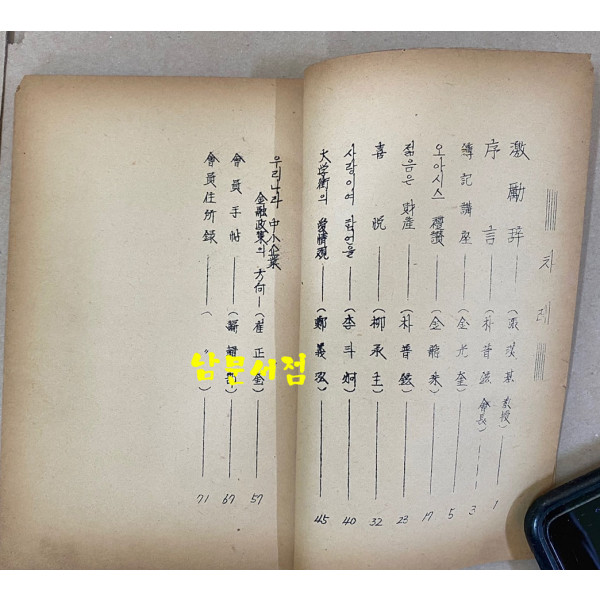 차례
激勵辞 (張 基 敎授) 1
序言 (朴晋鉉 會長) 3
簿記講座 (金光奎) 5
오아시스 禮讚 (金 來) 17
젊음은 財産 (朴晋鉉) 23
喜悅 (柳承主) 32
사랑이여 답언을 (李斗炯) 40
大学街의 愛情觀 (鄭義 ) 45
우리나라 中小企業
金融政策의 方向 (崔正金) 57
會員手帖 ( ) 67
會員住所錄 ( ) 71
남문서점